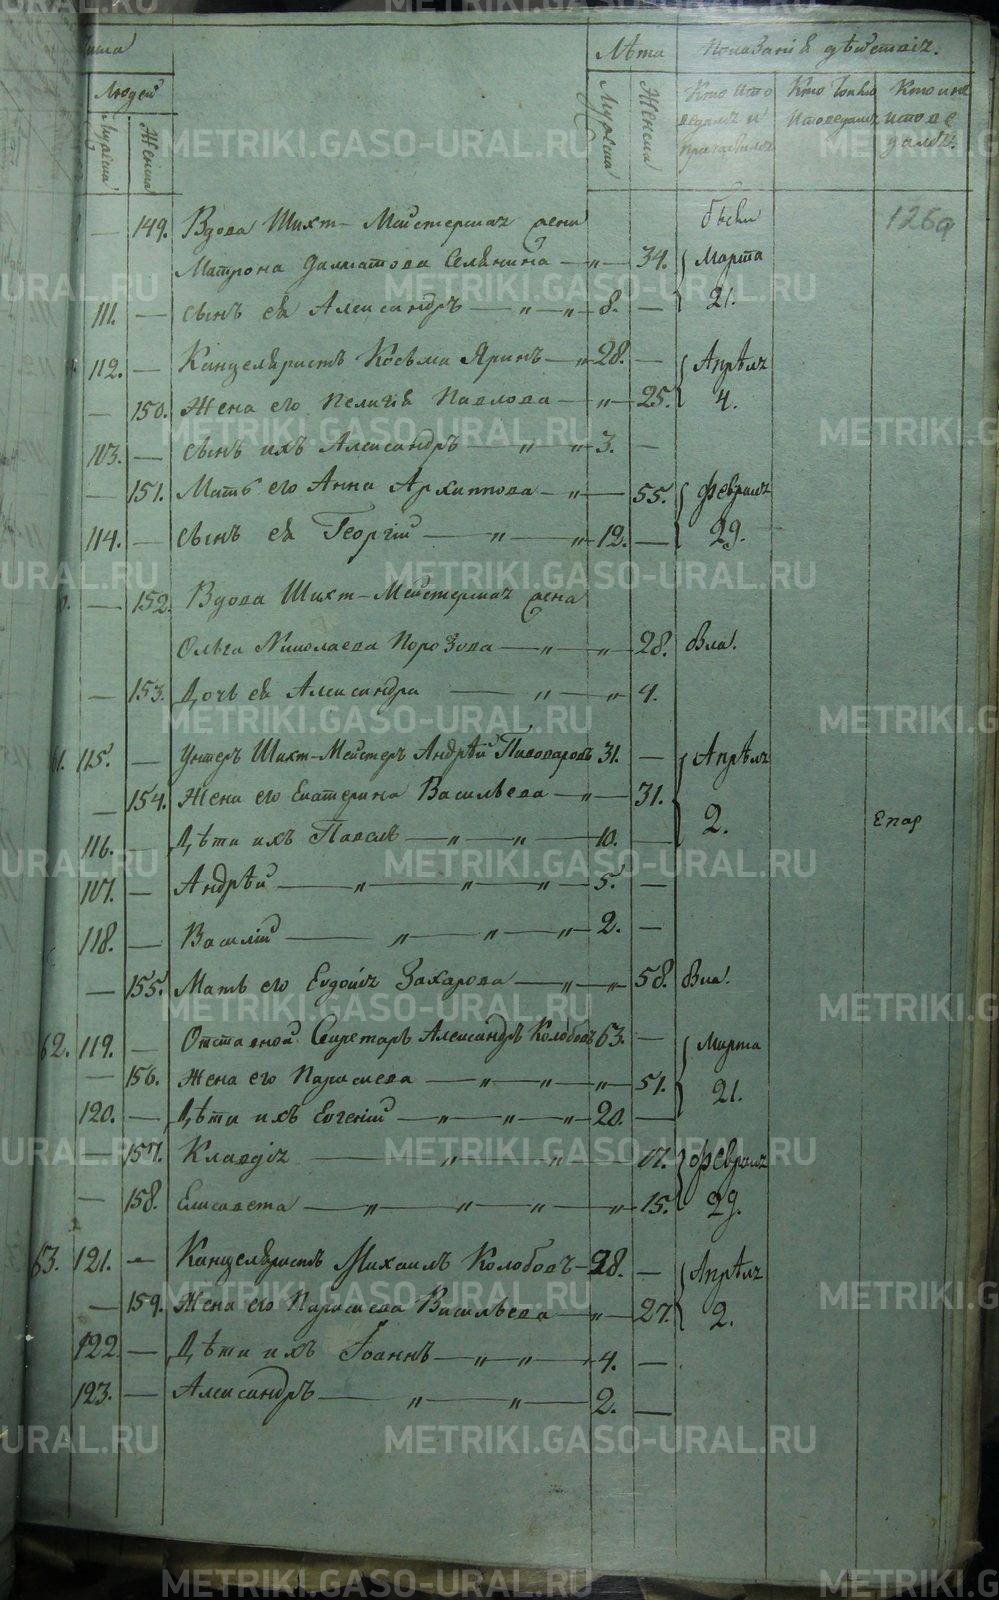 Лѣта Показанія дѣйствія.
Людей
Мужеска Женска Мужеска Женска Кто исповедалъ и Кто токмо исповедалъ Кто и не исповедалъ.
были 126
149. Вдова Шихт-Мейстерская жена
Матрона Далматова Селянина 34. Марта
111. сынъ ея Александръ 8. 21.
112. Канцеляристъ Косьма Яринъ 28. Апрѣля
150. Жена его Пелагія Павлова 25. 4.
113. сынъ ихъ Александръ 3.
151. Мать его Анна Архипова 55. Февраля
114. сынъ ея Георгій 12. 29.
152. Вдова Шихт-Мейстерская жена
Ольга Николаева Порозова 28. Вла.
153. Дочь ея Александра 4.
61. 115. Унтеръ Шихт-Мейстеръ Андрѣй Пивоваровъ 31. Апрѣля
154. Жена его Екатерина Васильева 31. 2.
116. Дѣти ихъ Павелъ 10. Епар
117. Андрѣй 5.
118. Василій 2.
155. Мать его Евдокія Захарова 58. Вла.
62. 119. Отставной Секретарь Александръ Колобовъ 63. Марта
156. Жена его Параскева 51. 21.
120. Дѣти ихъ Евгеній 20.
157. Клавдія 17. Февраля
158. Елисавета 15. 29.
63. 121. Канцеляристъ Михаилъ Колобовъ 28. Апрѣля
159. Жена его Параскева Васильева 27. 2.
122. Дѣти ихъ Іоаннъ 4.
123. Александръ 2.
METRIKI.GASO-URAL.RU